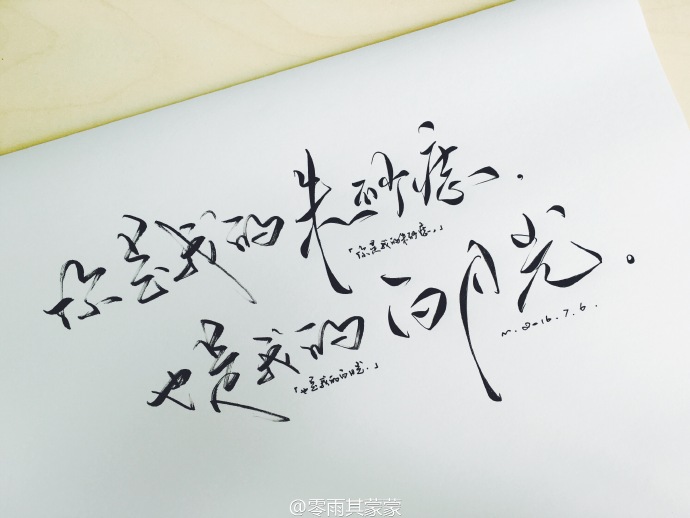 你是我的朱砂痣.
「你是我的朱砂痣。」
也是我的白月光.
「也是我的白月光.」
2016.7.6.
@零雨其蒙蒙